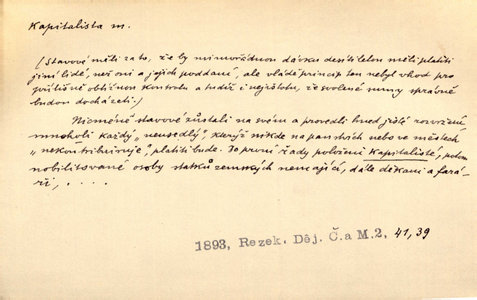 Kapitalista m.
(Stavové měli za to, že by mimořádnou dávku desítiletou měli platiti
jiní lidé, než oni a jejich poddaní, ale vládě princip ten nebyl vhod pro
přílišně obtížnou kontrolu a tudíž i nejistotu, že svolené sumy správně
budou docházeti.)
Nicméně stavové zůstali na svém a provedli hned jisté rozvržení
mnoholi každý „neusedlý", kterýž nikde na panstvích nebo ve městech
„nekontribuiruje", platiti bude. Do první řady položeni kapitalisté, potom
nobilitované osoby statků zemských nemající, dále děkani a fará-
ři, . . . .
1893, Rezek. Děj. Č. a M. 2, 41, 39